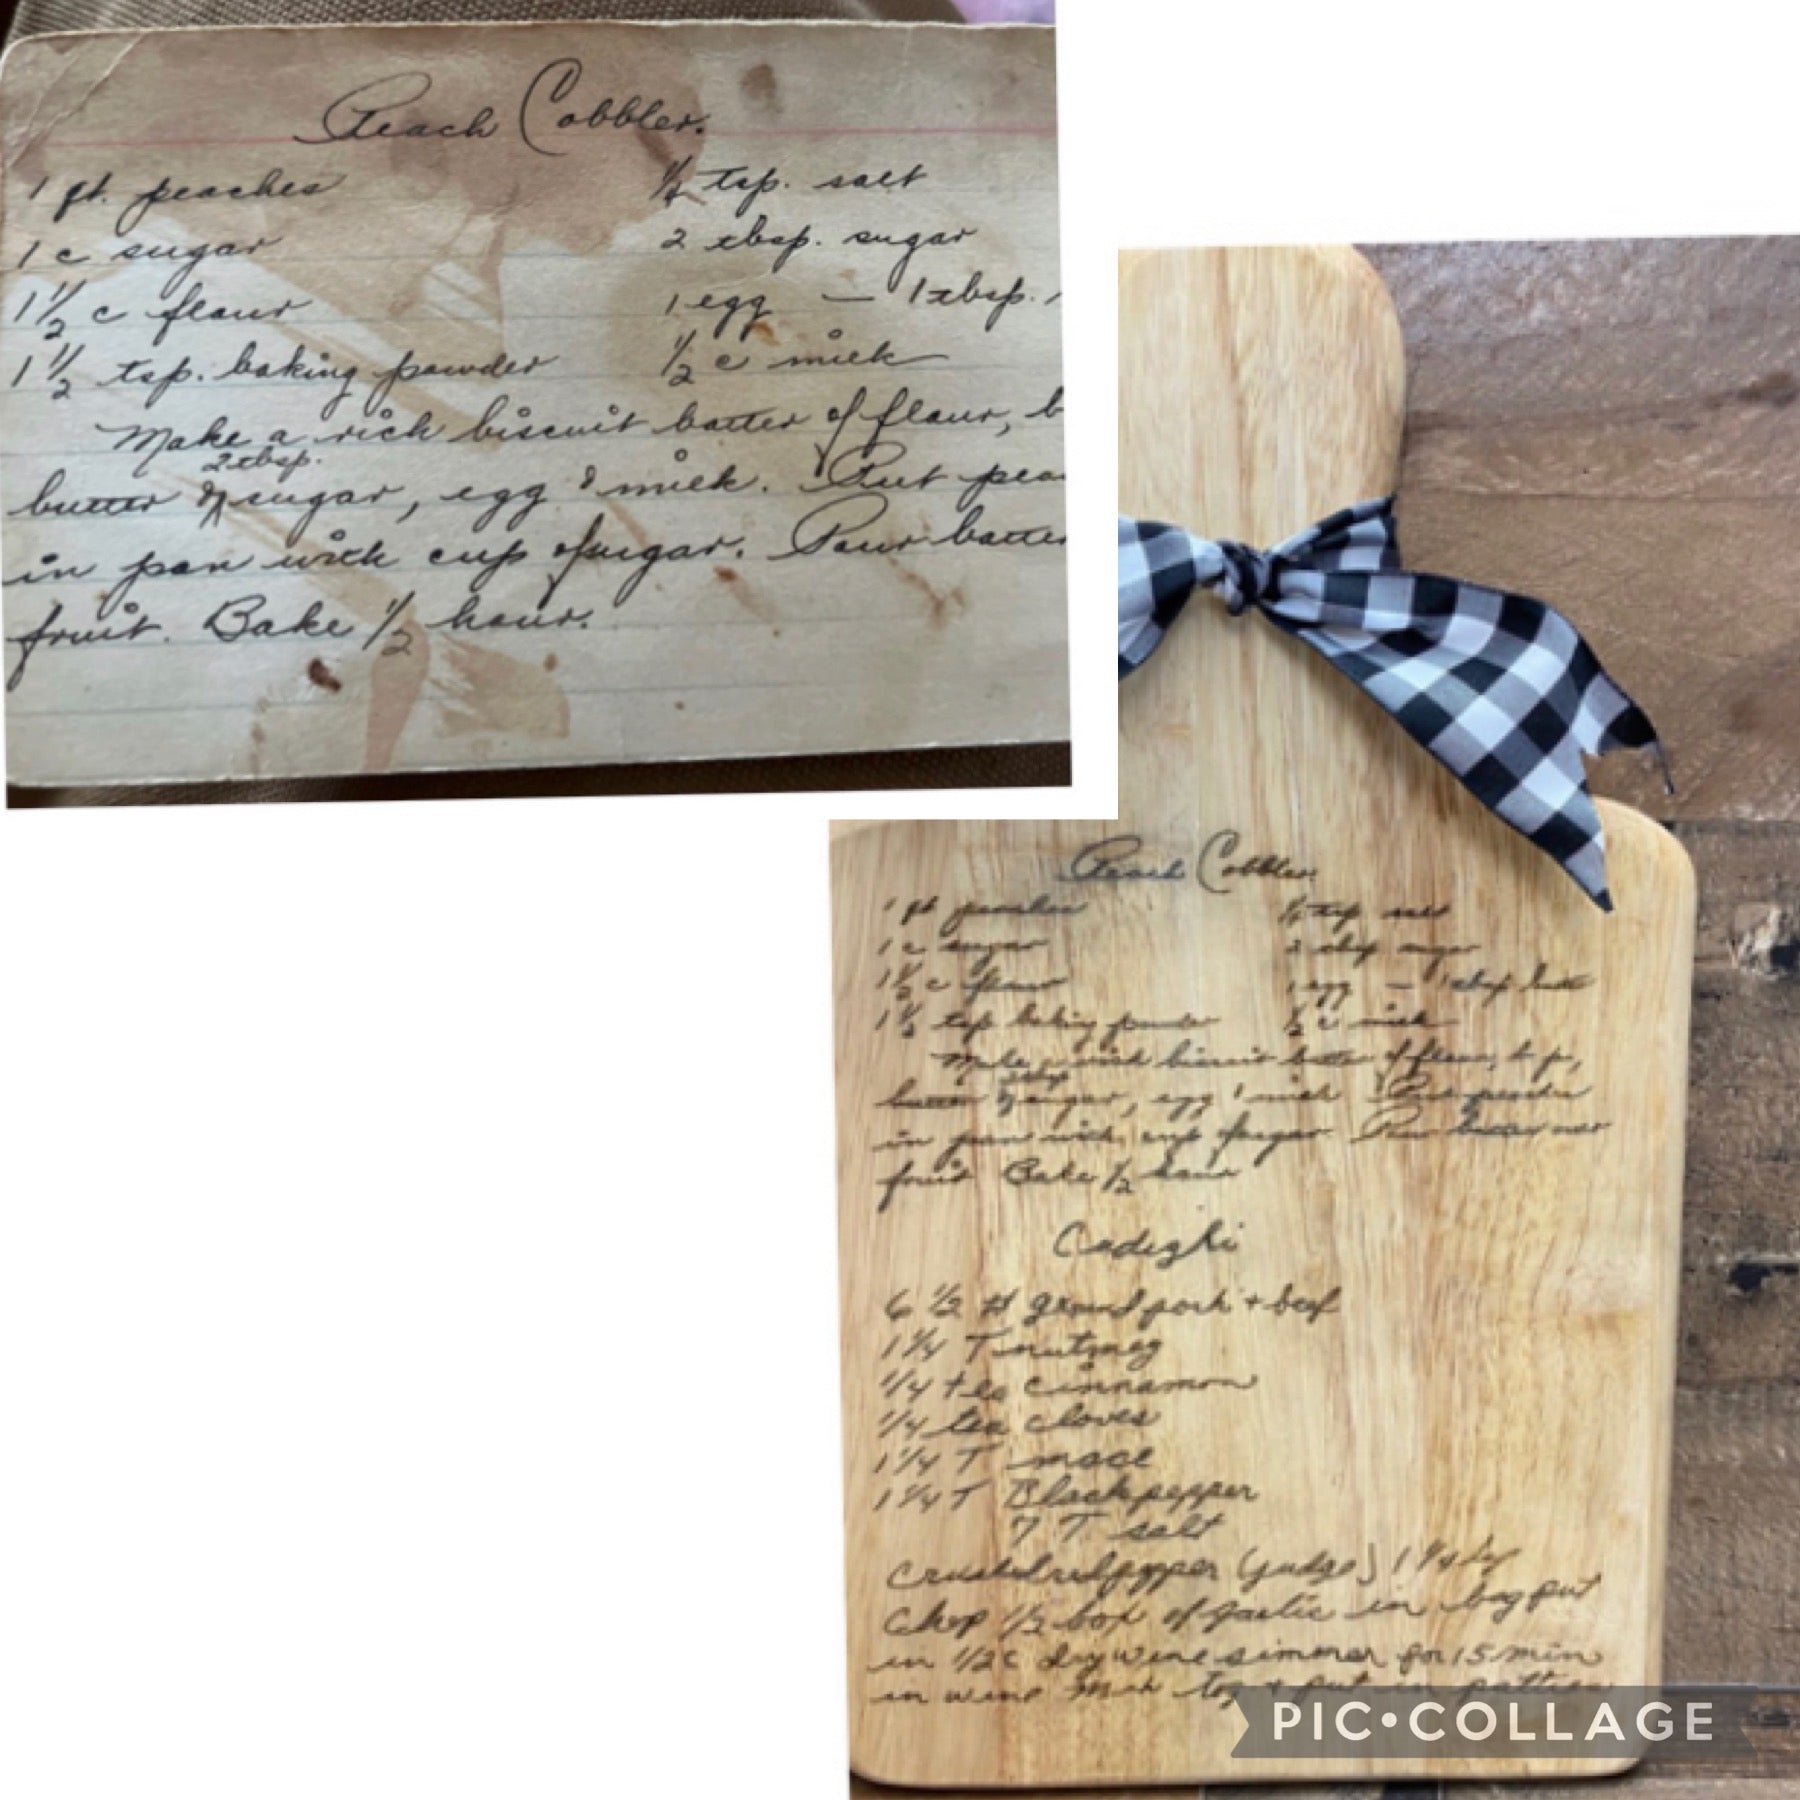 Peach Cobbler.
1 pt. peaches
1 c sugar
1 1/2 c flour
1 1/2 tsp. baking powder
1/2 tsp. salt
2 tbsp. sugar
1 egg — 1 tbsp.
1/2 c milk
Make a rich biscuit batter of flour, b
butter & 2 tbsp. sugar, egg & milk. Put pea
in pan with cup of sugar. Pour batter
fruit. Bake 1/2 hour.
Peach Cobbler.
1 pt peaches
1 c sugar
1 1/2 c flour
1 1/2 tsp baking powder
1/2 tsp salt
2 tbsp sugar
1 egg — 1 tbsp butter
1/2 c milk
Make a rich biscuit batter of flour, b. p,
butter & 2 tbsp sugar, egg & milk Put peaches
in pan with cup of sugar Pour batter over
fruit Bake 1/2 hour
Cadeghi
6 1/2 # ground pork + beef
1 1/4 T nutmeg
1/4 tea cinnamon
1/4 tea cloves
1 1/4 T mace
1 1/4 T Black pepper
7 T salt
Crushed red pepper (judge) 1 1/4
Chop 1/2 box of garlic in bag put
in 1/2 c dry wine simmer for 15 min
in wine Mix tog + put in patties
PIC•COLLAGE